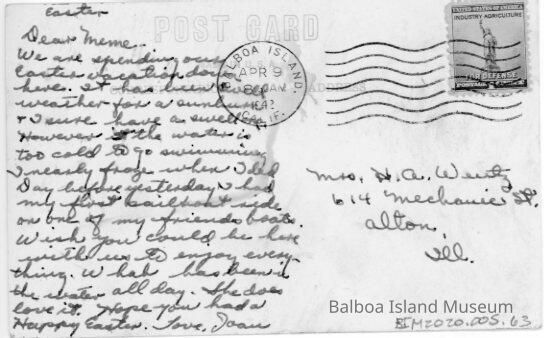 Easter
Dear Meme.
We are spending our
Easter vacation down
here. It has been
weather for a sunburn
& I sure have a swell
However the water is
too cold to go swimming
I nearly froze when I did
Day before yesterday I had
my first sailboat ride
on one of my friends boats.
Wish you could be here
with us to enjoy every-
thing. has been in
the water all day. She does
love it. Hope you had a
Happy Easter. Love, Joan
POST CARD
ADDRESS
BALBOA ISLAND,
APR 9
AM
1942
CALIF.
UNITED STATES OF AMERICA
INDUSTRY AGRICULTURE
FOR DEFENSE
POSTAGE
Mrs. H. A. Wentz
614 Mechanic St.
Alton,
Ill.
Balboa Island Museum
BIM2020.005.63